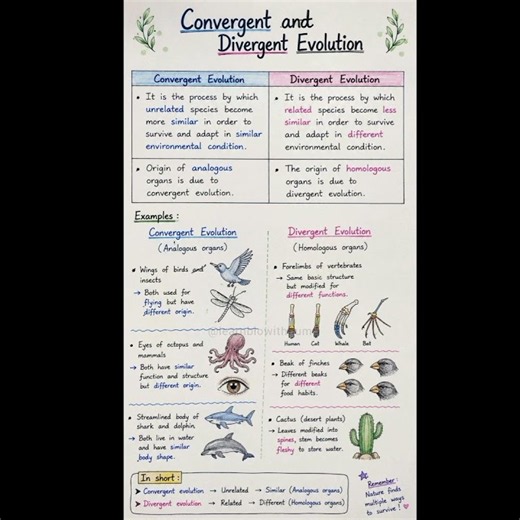 Convergent and
Divergent Evolution
Convergent Evolution
• It is the process by which
unrelated species become
more similar in order to
survive and adapt in similar
environmental condition.
• Origin of analogous
organs is due to
convergent evolution.
Divergent Evolution
• It is the process by which
related species become less
similar in order to survive
and adapt in different
environmental condition.
• The origin of homologous
organs is due to
divergent evolution.
Examples :
Convergent Evolution
(Analogous organs)
• Wings of birds and
insects
→ Both used for
flying but have
different origin.
• Eyes of octopus and
mammals
→ Both have similar
function and structure
but different origin.
• Streamlined body of
shark and dolphin.
→ Both live in water
and have similar
body shape.
Divergent Evolution
(Homologous organs)
• Forelimbs of vertebrates
→ Same basic structure
but modified for
different functions.
Human Cat Whale Bat
• Beak of finches
→ Different beaks
for different
food habits.
• Cactus (desert plants)
→ Leaves modified into
spines, stem becomes
fleshy to store water.
In short :
➤ Convergent evolution → Unrelated → Similar (Analogous organs)
➤ Divergent evolution → Related → Different (Homologous organs)
Remember :
Nature finds
multiple ways
to survive !